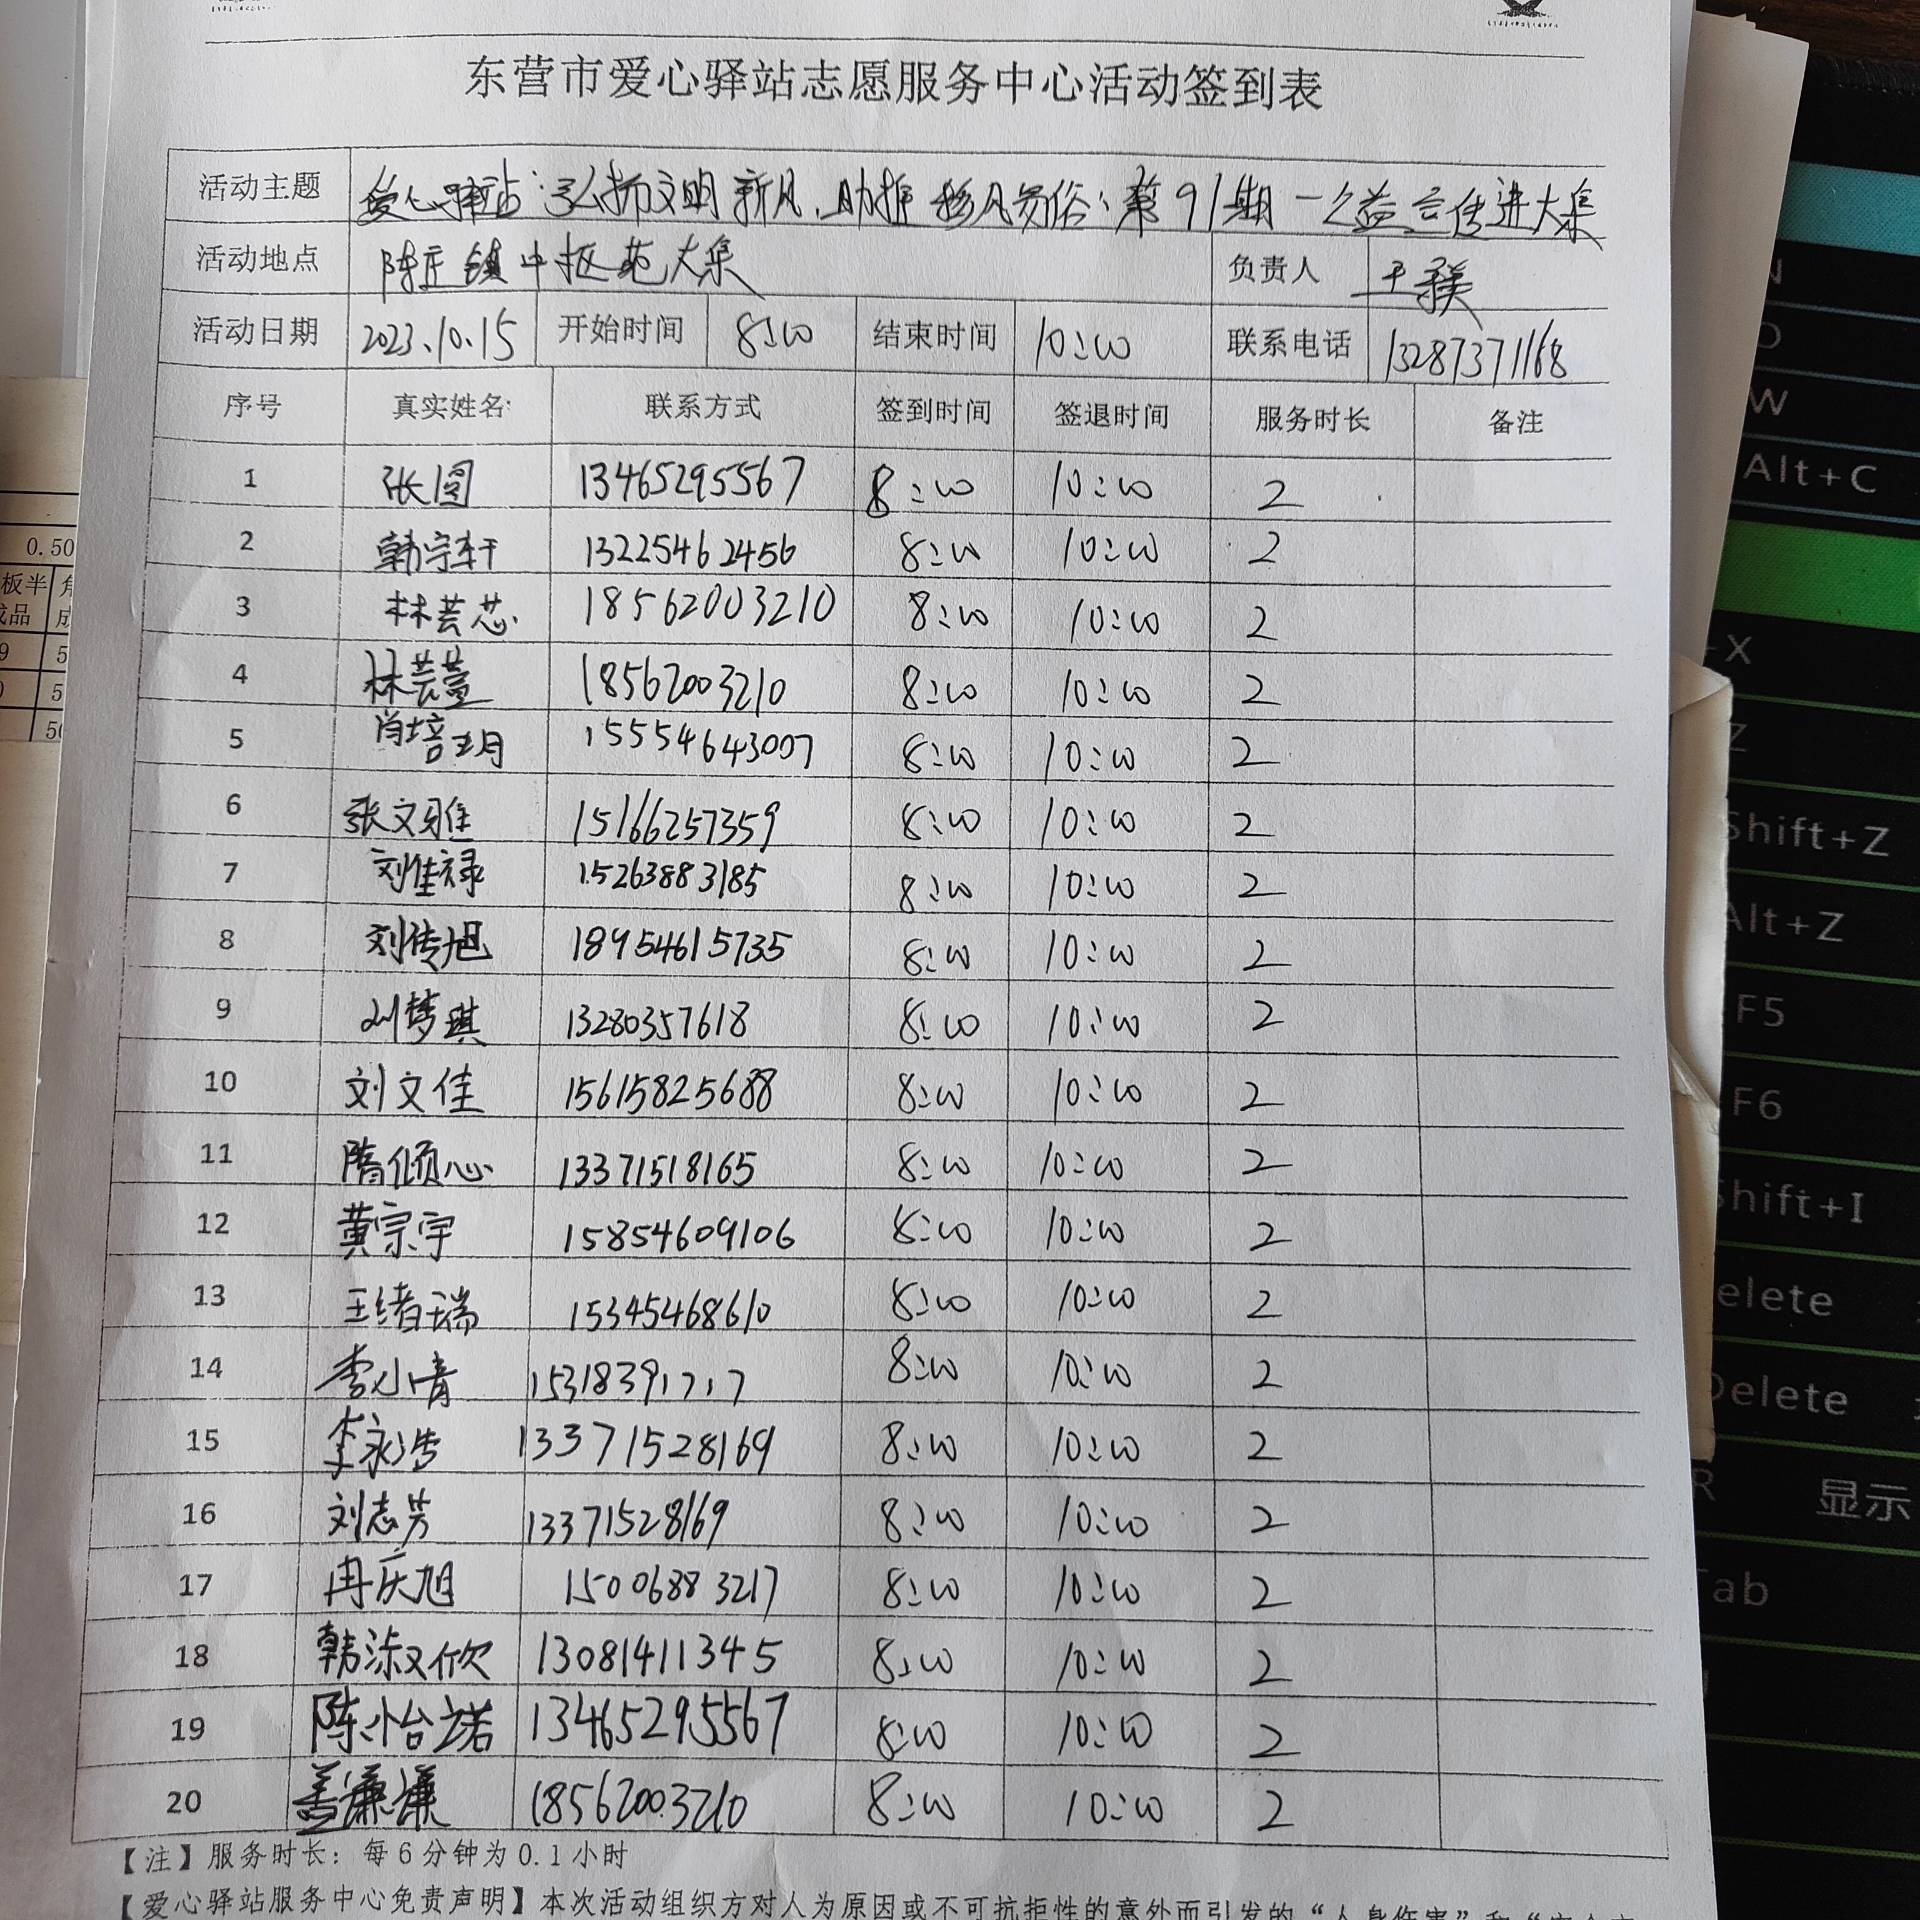 东营市爱心驿站志愿服务中心活动签到表
活动主题 爱心驿站:弘扬文明新风、助推移风易俗:第91期一公益宣传进大集
活动地点 陈庄镇中枢苑大集 负责人 王
活动日期 2023.10.15 开始时间 8:00 结束时间 10:00 联系电话 13287371168
序号 真实姓名 联系方式 签到时间 签退时间 服务时长 备注
1 张圆 13465295567 8:00 10:00 2
2 韩宇轩 13225462456 8:00 10:00 2
3 林芸芯 18562003210 8:00 10:00 2
4 林芸萱 18562003210 8:00 10:00 2
5 肖培玥 15554643007 8:00 10:00 2
6 张文雅 15166257359 8:00 10:00 2
7 刘佳禄 15263883185 8:00 10:00 2
8 刘传旭 18954615735 8:00 10:00 2
9 刘梦琪 13280357618 8:00 10:00 2
10 刘文佳 15615825688 8:00 10:00 2
11 隋倾心 13371518165 8:00 10:00 2
12 黄宗宇 15854609106 8:00 10:00 2
13 王绪瑞 15345468610 8:00 10:00 2
14 李小青 15318391717 8:00 10:00 2
15 李永浩 13371528169 8:00 10:00 2
16 刘志芳 13371528169 8:00 10:00 2
17 冉庆旭 15006883217 8:00 10:00 2
18 韩 欣 13081411345 8:00 10:00 2
19 陈怡诺 13465295567 8:00 10:00 2
20 善谦谦 18562003210 8:00 10:00 2
【注】服务时长：每6分钟为0.1小时
【爱心驿站服务中心免责声明】本次活动组织方对人为原因或不可抗拒性的意外而引发的“人身伤害”和“
0.50
板半
成品
成
9
5
5
50
N
W
Alt+C
+X
Z
Shift+Z
Alt+Z
F5
F6
Shift+I
Delete
Delete
R 显示
Tab